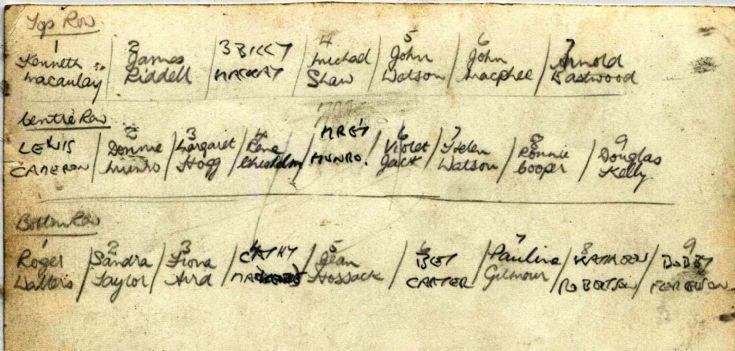 Top Row
1 2 3 BILLY 4 5 6 7
Kenneth / James / Michael / John / John / Arnold
Macaulay / Riddell / MACKAY / Shaw / Watson / Macphee / Eastwood
Centre Row
2 3 4 MRS 6 7 8 9
LEWIS / Donnie / Margaret / Rene / Violet / Helen / Ronnie / Douglas
CAMERON / Munro / Hogg / Chisholm / MUNRO. / Jack / Watson / Cooper / Kelly
Bottom Row
1 2 3 4 CATHY 5 6 BET 7 Pauline 8 KATHLEEN 9 BOBBY
Roger / Sandra / Fiona / Jean
Walters / Taylor / Hird / Hossack / CARTER / Gilmour / ROBERTSON / FERGUSON